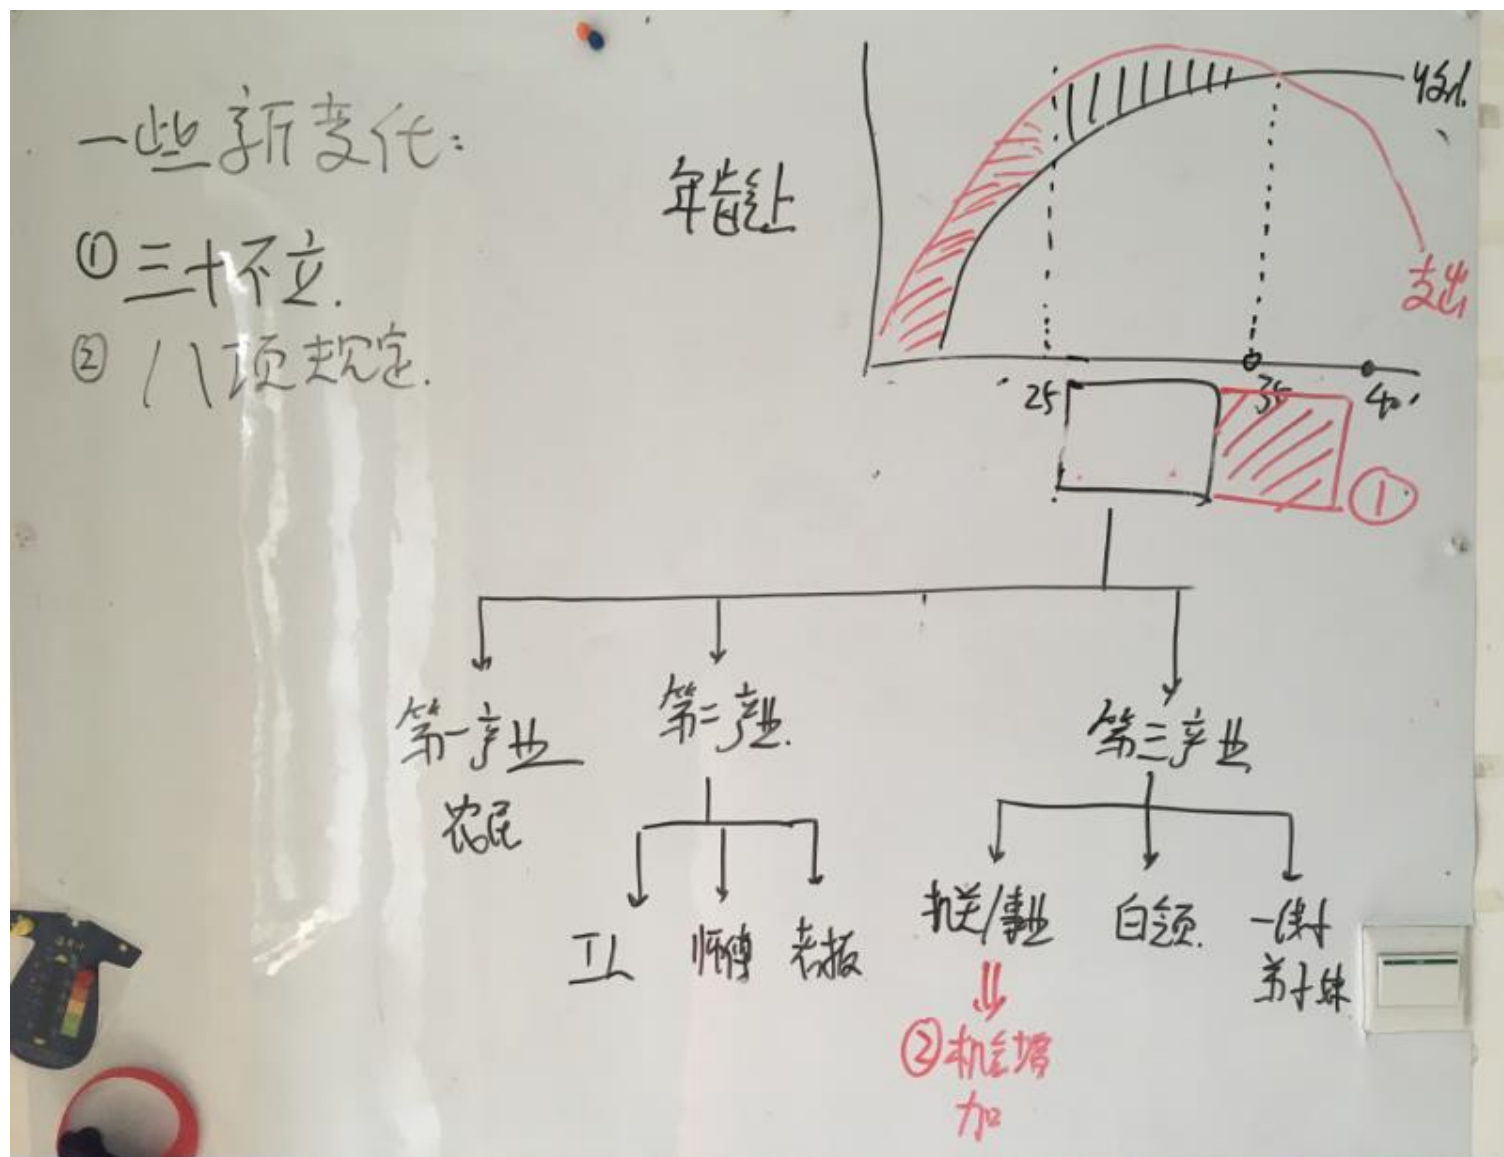 一些新变化:
① 三十不立.
② 八项规定.
年龄上
收入
支出
25
35
40
①
第一产业
农民
第二产业.
工人
师傅
老板
第三产业
机关/事业
白领.
一线
弟子妹
②机会增
加